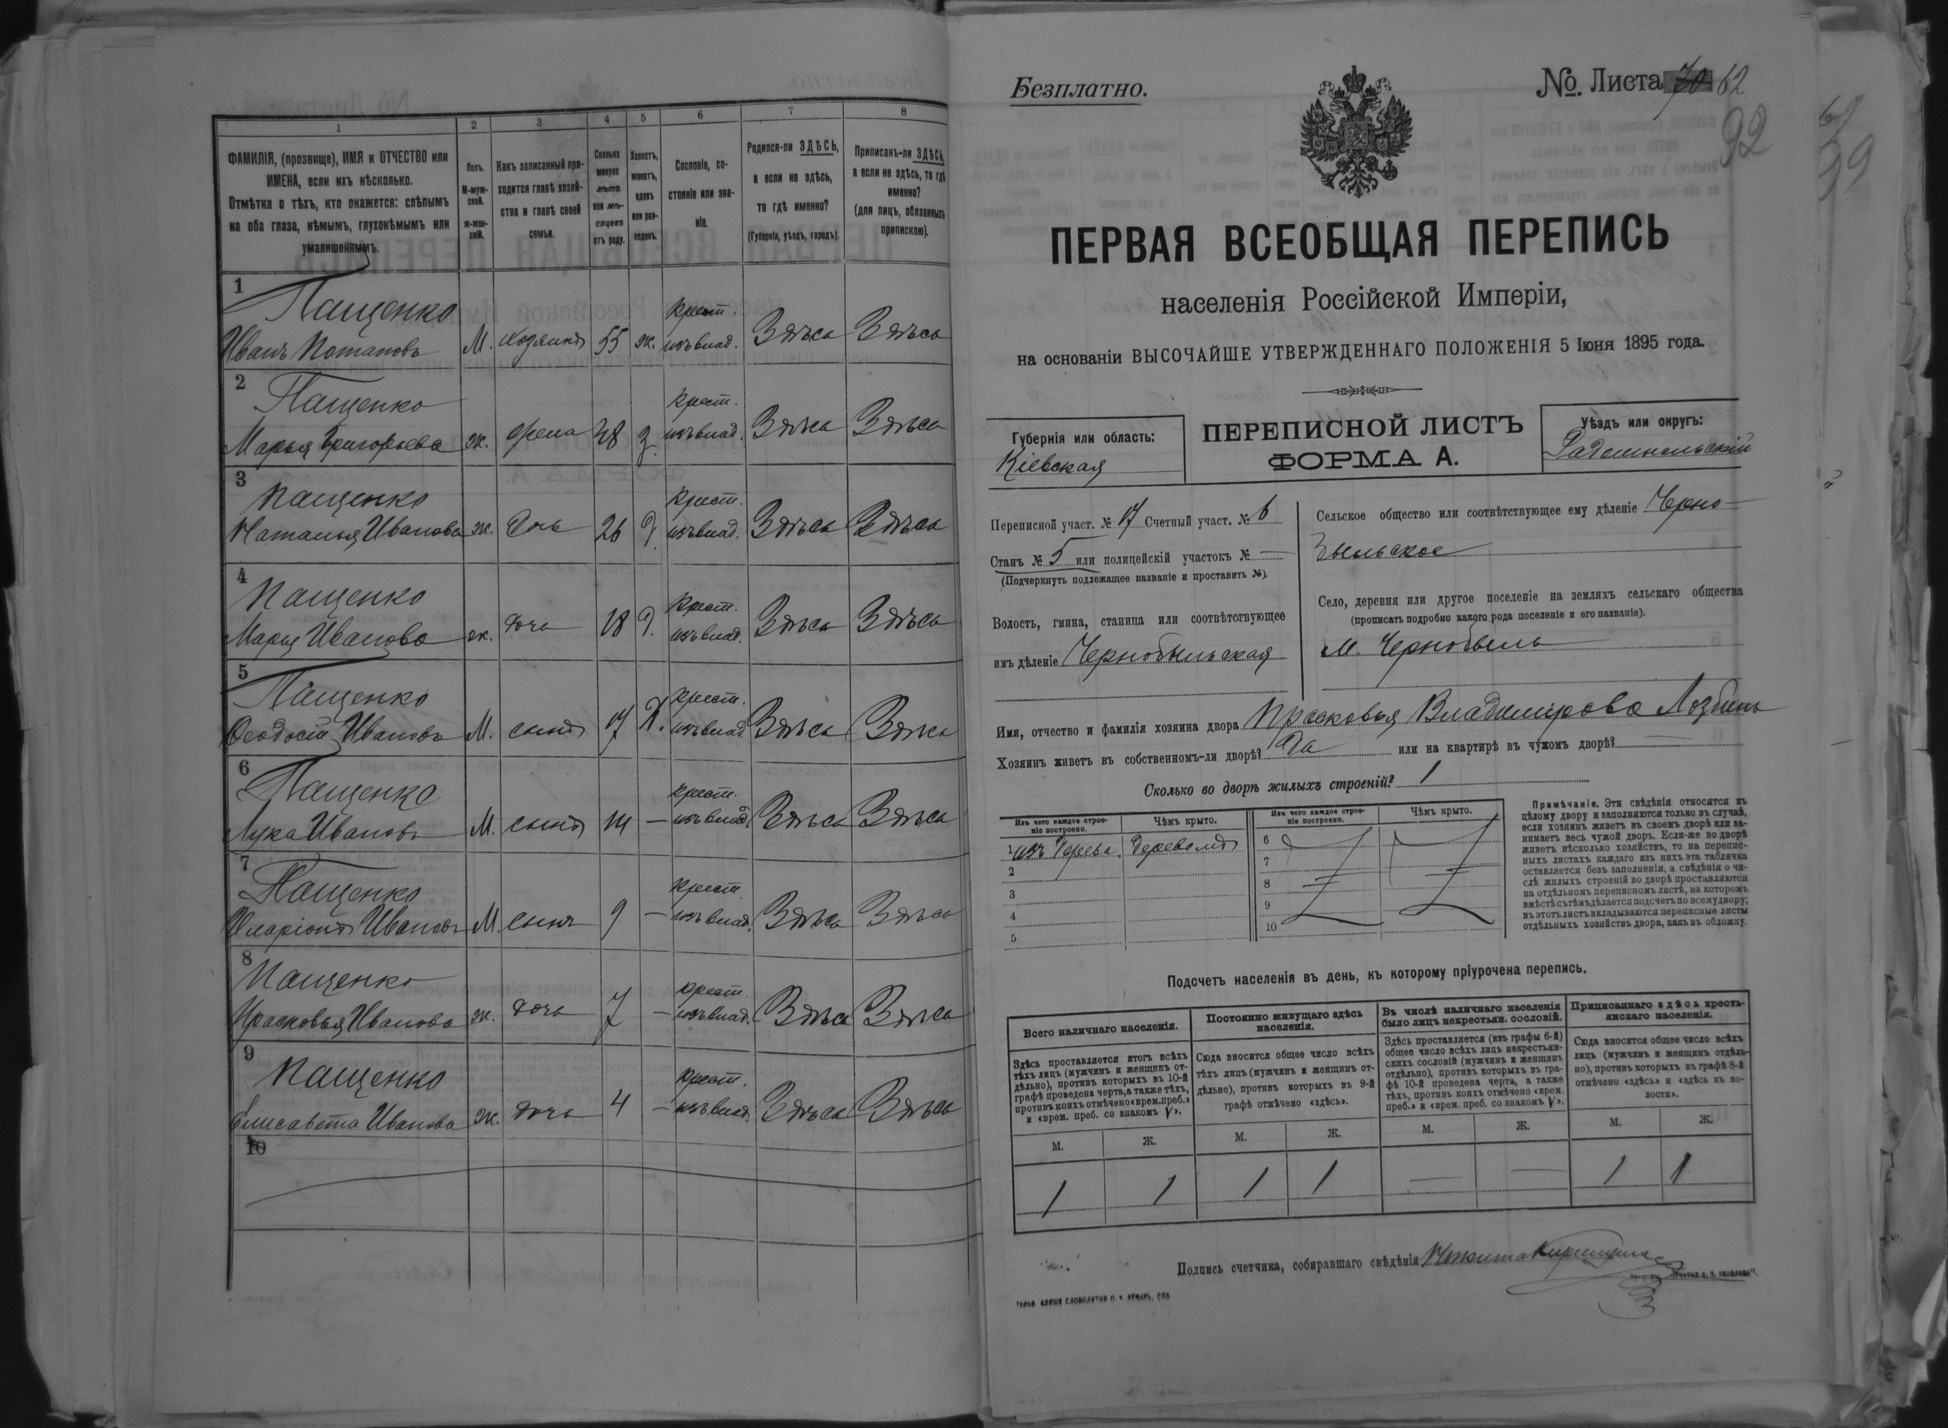 1
2
3
4
5
6
7
8
ФАМИЛІЯ, (прозвище), ИМЯ и ОТЧЕСТВО или
ИМЕНА, если ихъ нѣсколько.
Отмѣтка о тѣхъ, кто окажется: слѣпымъ
на оба глаза, нѣмымъ, глухонѣмымъ или
умалишеннымъ.
Полъ.
М-муж-
ской.
ж-жен-
скій.
Какъ записанный при-
ходится главѣ хозяй-
ства и главѣ своей
семьи.
Сколько
минуло
лѣтъ
или мѣ-
сяцевъ
отъ роду.
Холостъ,
женатъ,
вдовъ
или раз-
веденъ.
Сословіе, со-
стояніе или зва-
ніе.
Родился-ли ЗДѢСЬ,
а если не здѣсь,
то гдѣ именно?
(Губернія, уѣздъ, городъ).
Приписанъ-ли ЗДѢСЬ,
а если не здѣсь, то гдѣ
именно?
(для лицъ, обязанныхъ
припискою).
1
Пащенко крест.
Иванъ Потаповъ М. хозяинъ 55 ж. изъ влад. Здѣсь Здѣсь
2
Пащенко крест.
Марья Григорьева ж. жена 48 з. изъ влад. Здѣсь Здѣсь
3
Пащенко крест.
Наталья Иванова ж. дочь 26 д. изъ влад. Здѣсь Здѣсь
4
Пащенко крест.
Марія Иванова ж. дочь 18 д. изъ влад. Здѣсь Здѣсь
5
Пащенко крест.
Феодосій Ивановъ М. сынъ 17 Х. изъ влад. Здѣсь Здѣсь
6
Пащенко крест.
Лука Ивановъ М. сынъ 14 — изъ влад. Здѣсь Здѣсь
7
Пащенко крест.
Иларіонъ Ивановъ М. сынъ 9 — изъ влад. Здѣсь Здѣсь
8
Пащенко крест.
Прасковья Иванова ж. дочь 7 — изъ влад. Здѣсь Здѣсь
9
Пащенко крест.
Елисавета Иванова ж. дочь 4 — изъ влад. Здѣсь Здѣсь
10
Безплатно.
№. Листа 70 62
92
ПЕРВАЯ ВСЕОБЩАЯ ПЕРЕПИСЬ
населенія Россійской Имперіи,
на основаніи ВЫСОЧАЙШЕ УТВЕРЖДЕННАГО ПОЛОЖЕНІЯ 5 Іюня 1895 года.
Губернія или область:
Кіевская
ПЕРЕПИСНОЙ ЛИСТЪ
ФОРМА А.
Уѣздъ или округъ:
Радомысльскій
Переписной участ. № 17 Счетный участ. № 6
Станъ № 5 или полицейскій участокъ № —
(Подчеркнуть подлежащее названіе и проставить №).
Волость, гмина, станица или соотвѣтствующее
имъ дѣленіе Чернобыльская
Сельское общество или соотвѣтствующее ему дѣленіе Черно-
быльское
Село, деревня или другое поселеніе на земляхъ сельскаго общества
(прописать подробно какого рода поселеніе и его названіе).
м. Чернобыль
Имя, отчество и фамилія хозяина двора Прасковья Владимирова
Хозяинъ живетъ въ собственномъ-ли дворѣ? Да или на квартирѣ въ чужомъ дворѣ? —
Сколько во дворѣ жилыхъ строеній? 1
Изъ чего каждое строе-
ніе построено.
Чѣмъ крыто.
Изъ чего каждое строе-
ніе построено.
Чѣмъ крыто.
1 изъ дерева. деревомъ
2
3
4
5
6
7
8
9
10
Примѣчаніе. Эти свѣдѣнія относятся къ
цѣлому двору и заполняются только въ случаѣ,
если хозяинъ живетъ въ своемъ дворѣ или за-
нимаетъ весь чужой дворъ. Если-же во дворѣ
живетъ нѣсколько хозяйствъ, то на перепис-
ныхъ листахъ каждаго изъ нихъ эта табличка
оставляется безъ заполненія, а свѣдѣнія о чи-
слѣ жилыхъ строеній во дворѣ проставляются
на отдѣльномъ переписномъ листѣ, на которомъ
вмѣстѣ съ тѣмъ дѣлается подсчетъ по всему двору;
въ этотъ листъ вкладываются переписные листы
отдѣльныхъ хозяйствъ двора, какъ въ обложку.
Подсчетъ населенія въ день, къ которому пріурочена перепись.
Всего наличнаго населенія.
Здѣсь проставляется итогъ всѣхъ
тѣхъ лицъ (мужчинъ и женщинъ от-
дѣльно), противъ которыхъ въ 10-й
графѣ проведена черта, а также тѣхъ,
противъ коихъ отмѣчено «врем. преб.»
и «врем. преб. со знакомъ V».
Постоянно живущаго здѣсь
населенія.
Сюда вносится общее число всѣхъ
тѣхъ лицъ (мужчинъ и женщинъ от-
дѣльно), противъ которыхъ въ 9-й
графѣ отмѣчено «здѣсь».
Въ числѣ наличнаго населенія
было лицъ некрестьян. сословій.
Здѣсь проставляется (изъ графы 6-й)
общее число всѣхъ лицъ некрестьян-
скихъ сословій (мужчинъ и женщинъ
отдѣльно), противъ которыхъ въ гра-
фѣ 10-й проведена черта, а также
тѣхъ, противъ коихъ отмѣчено «врем.
преб.» и «врем. преб. со знакомъ V».
Приписаннаго здѣсь кресть-
янскаго населенія.
Сюда вносится общее число всѣхъ
лицъ (мужчинъ и женщинъ отдѣль-
но), противъ которыхъ въ графѣ 8-й
отмѣчено «здѣсь» и «здѣсь въ во-
лости».
М. Ж. М. Ж. М. Ж. М. Ж.
1 1 1 1 — — 1 1
Подпись счетчика, собиравшаго свѣдѣнія Никита